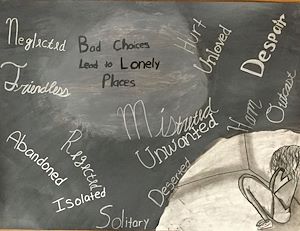 Neglected
Friendless
Bad Choices
Lead to Lonely
Places
Hurt
Unloved
Despair
Mistrust
Unwanted
Harm
Outcast
Abandoned
Rejected
Isolated
Deserted
Solitary